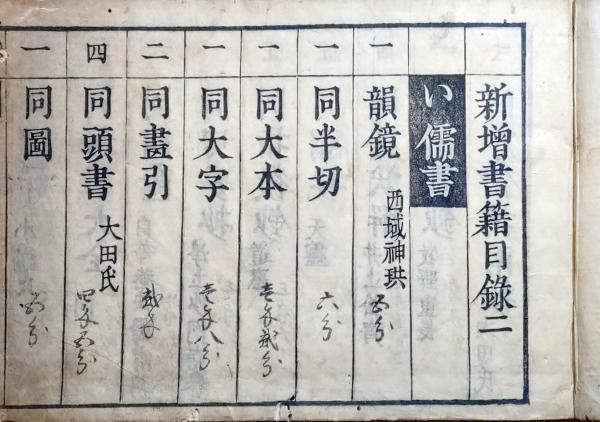 新增書籍目錄二
い 儒書
一 韻鏡 西域神珙 五分
一 同半切 六分
一 同大本 壱匁弐分
一 同大字 壱匁八分
二 同畫引 弐匁
四 同頭書 大田氏 四匁五分
一 同圖 五分